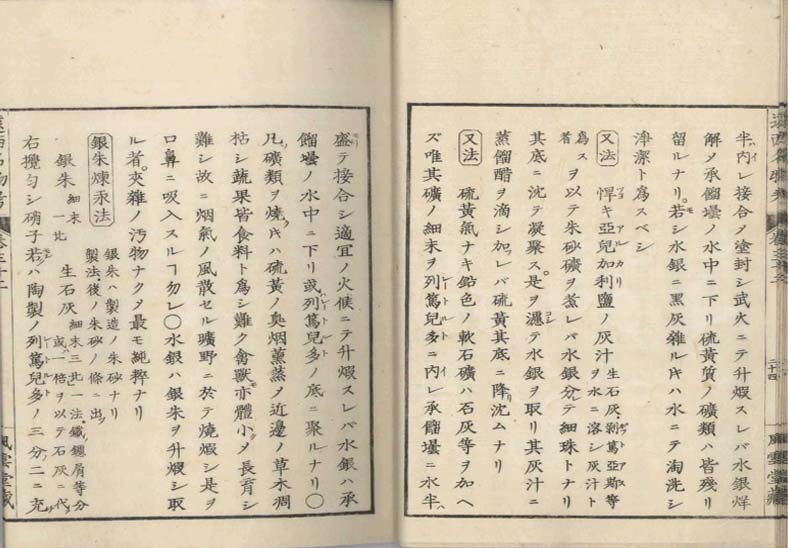 半内レ接合ノ塗封シ武火ニテ升煆スレバ水銀烊
解メ承餾壜ノ水中ニ下リ硫黄質ノ礦類ハ皆残リ
留ルナリ。若シ水銀ニ黒灰雑ルキハ水ニテ淘洗シ
浄潔ト爲スベシ
又法 悍キ亞兒加利鹽ノ灰汁ヲ水ニ溶シ灰汁ト
生石灰剝篤亞斯等
爲スヲ以テ朱砂礦ヲ煮レバ水銀分テ細珠トナリ
者
其底ニ沈テ凝聚ス。是ヲ濾テ水銀ヲ取リ其灰汁ニ
蒸餾醋ヲ滴シ加レバ硫黄其底ニ降沈ムナリ
又法 硫黄氣ナキ鉛色ノ軟石礦ハ石灰等ヲ加ヘ
ズ唯其礦ノ細末ヲ列篤兒多ニ内レ承餾壜ニ水半
遠西名物考 巻三十二
三十四
風雲堂藏
盛テ接合シ適宜ノ火候ニテ升煆スレバ水銀ハ承
餾壜ノ水中ニ下リ或列篤兒多ノ底ニ聚ルナリ〇
凡礦類ヲ燒キハ硫黄ノ臭烟薫蒸メ近邊ノ草木凋
枯シ蔬果皆食料ト爲シ難ク禽獣亦體小メ長育シ
難シ故ニ烟氣ノ風散セル曠野ニ於テ燒煆シ是ヲ
口鼻ニ吸入スルヿ勿レ〇水銀ハ銀朱ヲ升煆シ取
ル者。夾雑ノ汚物ナクメ最モ純粋ナリ
銀朱煉汞法 銀朱ハ製造ノ朱砂ナリ
製法後ノ朱砂ノ條ニ出ヅ
銀朱 細末一比 生石灰 細末三比一法鐵鑢屑等分
或一倍ヲ以テ石灰ニ代
右攪匀シ硝子若ハ陶製ノ列篤兒多ノ三分二ニ充
遠西名物考 巻三十二
風雲堂藏